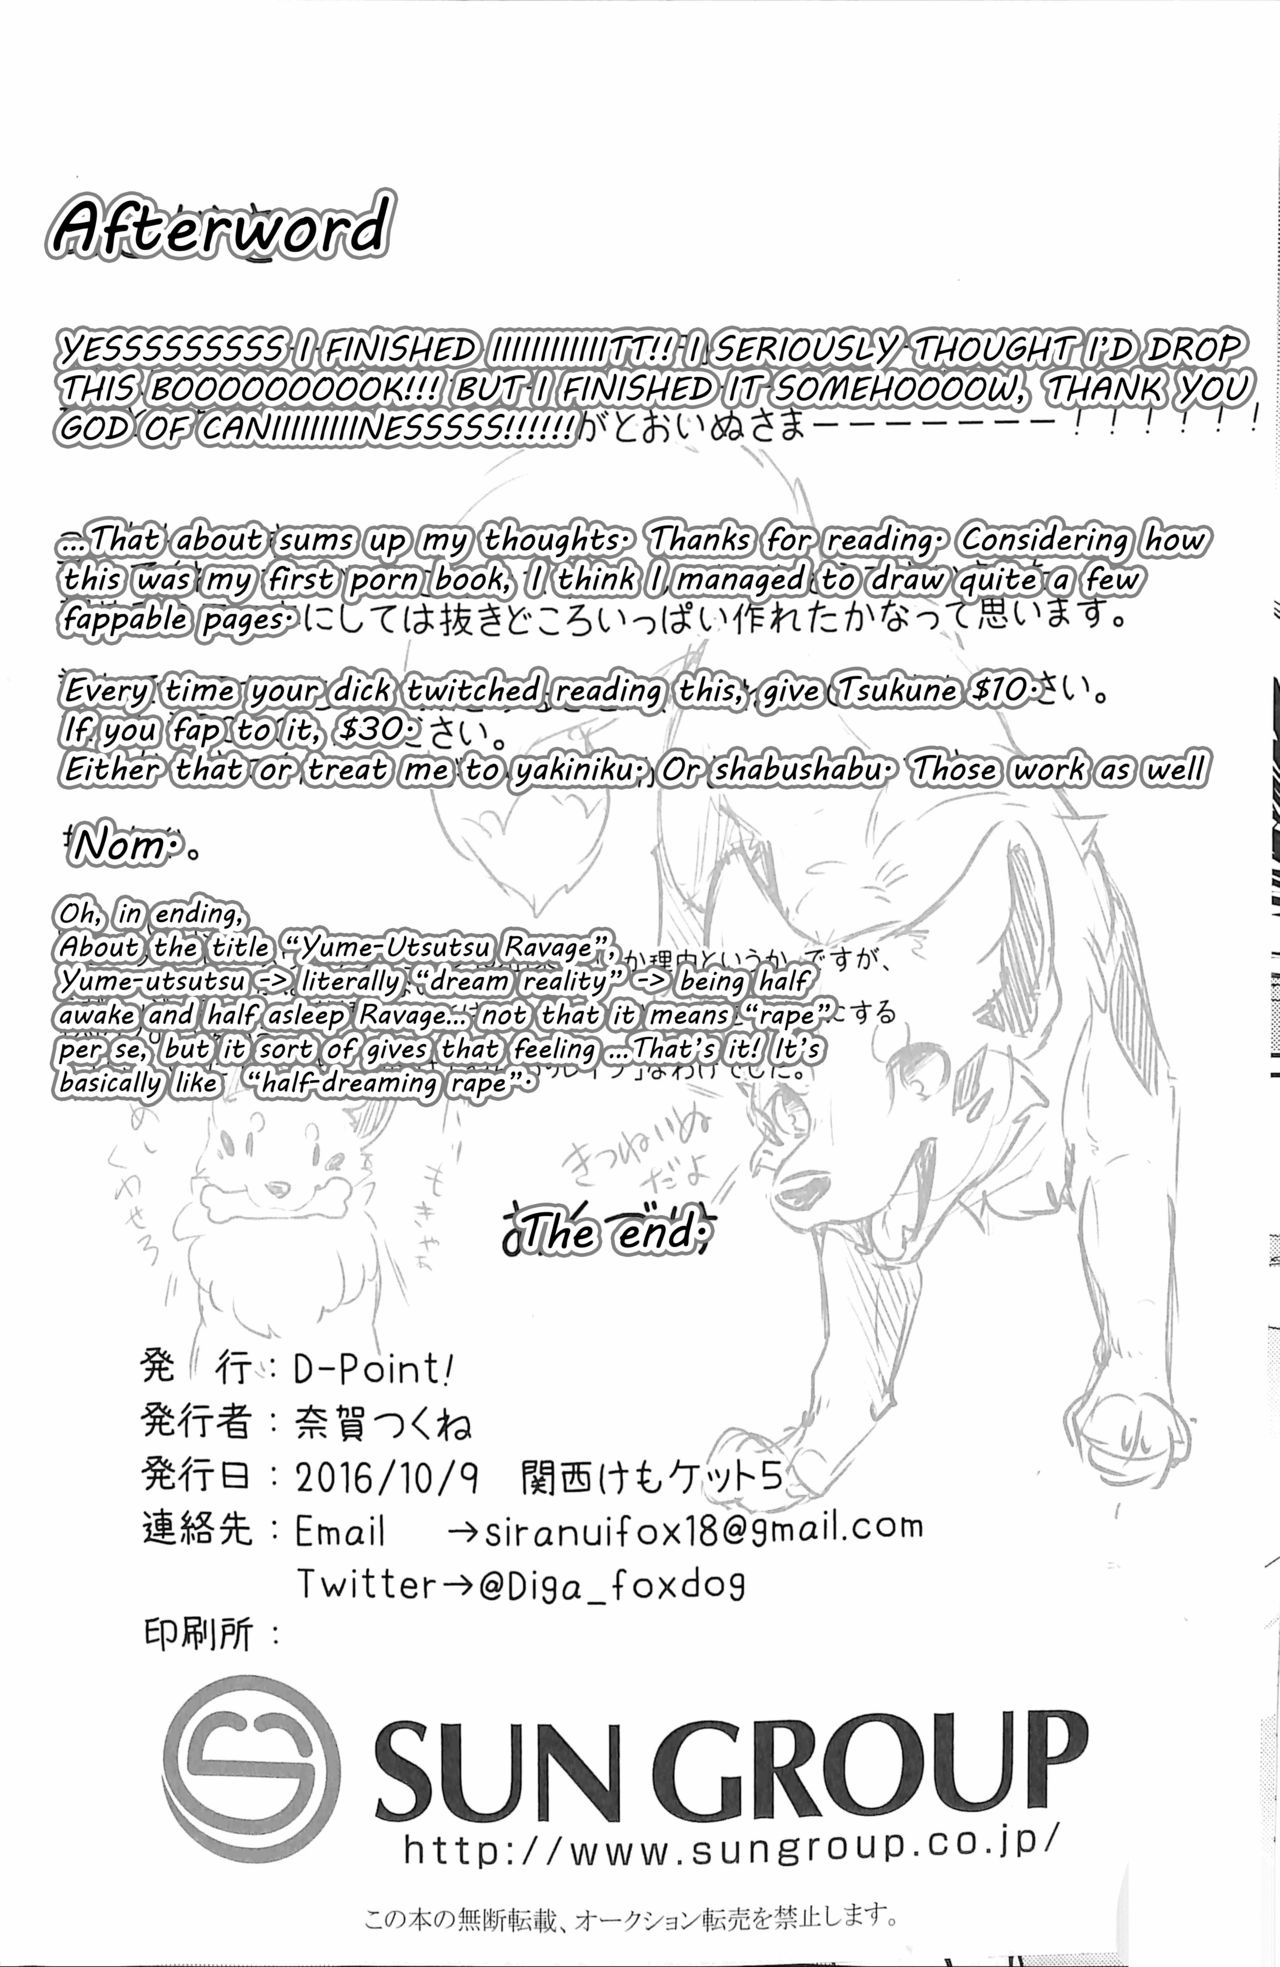 Afterword
YESSSSSSSSS I FINISHED IIIIIIIIIIIITT!! I SERIOUSLY THOUGHT I'D DROP
THIS BOOOOOOOOOK!!! BUT I FINISHED IT SOMEHOOOOW, THANK YOU
GOD OF CANIIIIIIIIINESSSSS!!!!!!がとおいぬさまーーーーーーー！！！！！！
...That about sums up my thoughts. Thanks for reading. Considering how
this was my first porn book, I think I managed to draw quite a few
fappable pages. にしては抜きどころいっぱい作れたかなって思います。
Every time your dick twitched reading this, give Tsukune $10. さい。
If you fap to it, $30. ださい。
Either that or treat me to yakiniku. Or shabushabu. Those work as well
Nom. 。
Oh, in ending,
About the title "Yume-Utsutsu Ravage", か理由というか、ですが、
Yume-utsutsu -> literally "dream reality" -> being half
awake and half asleep Ravage... not that it means "rape" にする
per se, but it sort of gives that feeling ...That's it! It's
basically like "half-dreaming rape". なわけでした。
めし
くわせろ
もきゃぁ
きつねいぬ
だよ
The end.
発 行：D-Point!
発行者：奈賀つくね
発行日：2016/10/9 関西けもケット5
連絡先：Email →siranuifox18@gmail.com
Twitter→@Diga_foxdog
印刷所：
SUN GROUP
http://www.sungroup.co.jp/
この本の無断転載、オークション転売を禁止します。